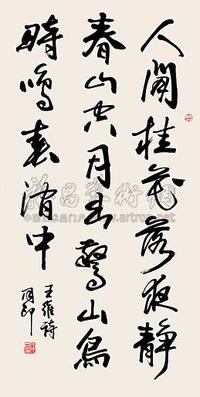 人閒桂花落夜靜
春山空月出驚山鳥
時鳴春澗中
王維詩